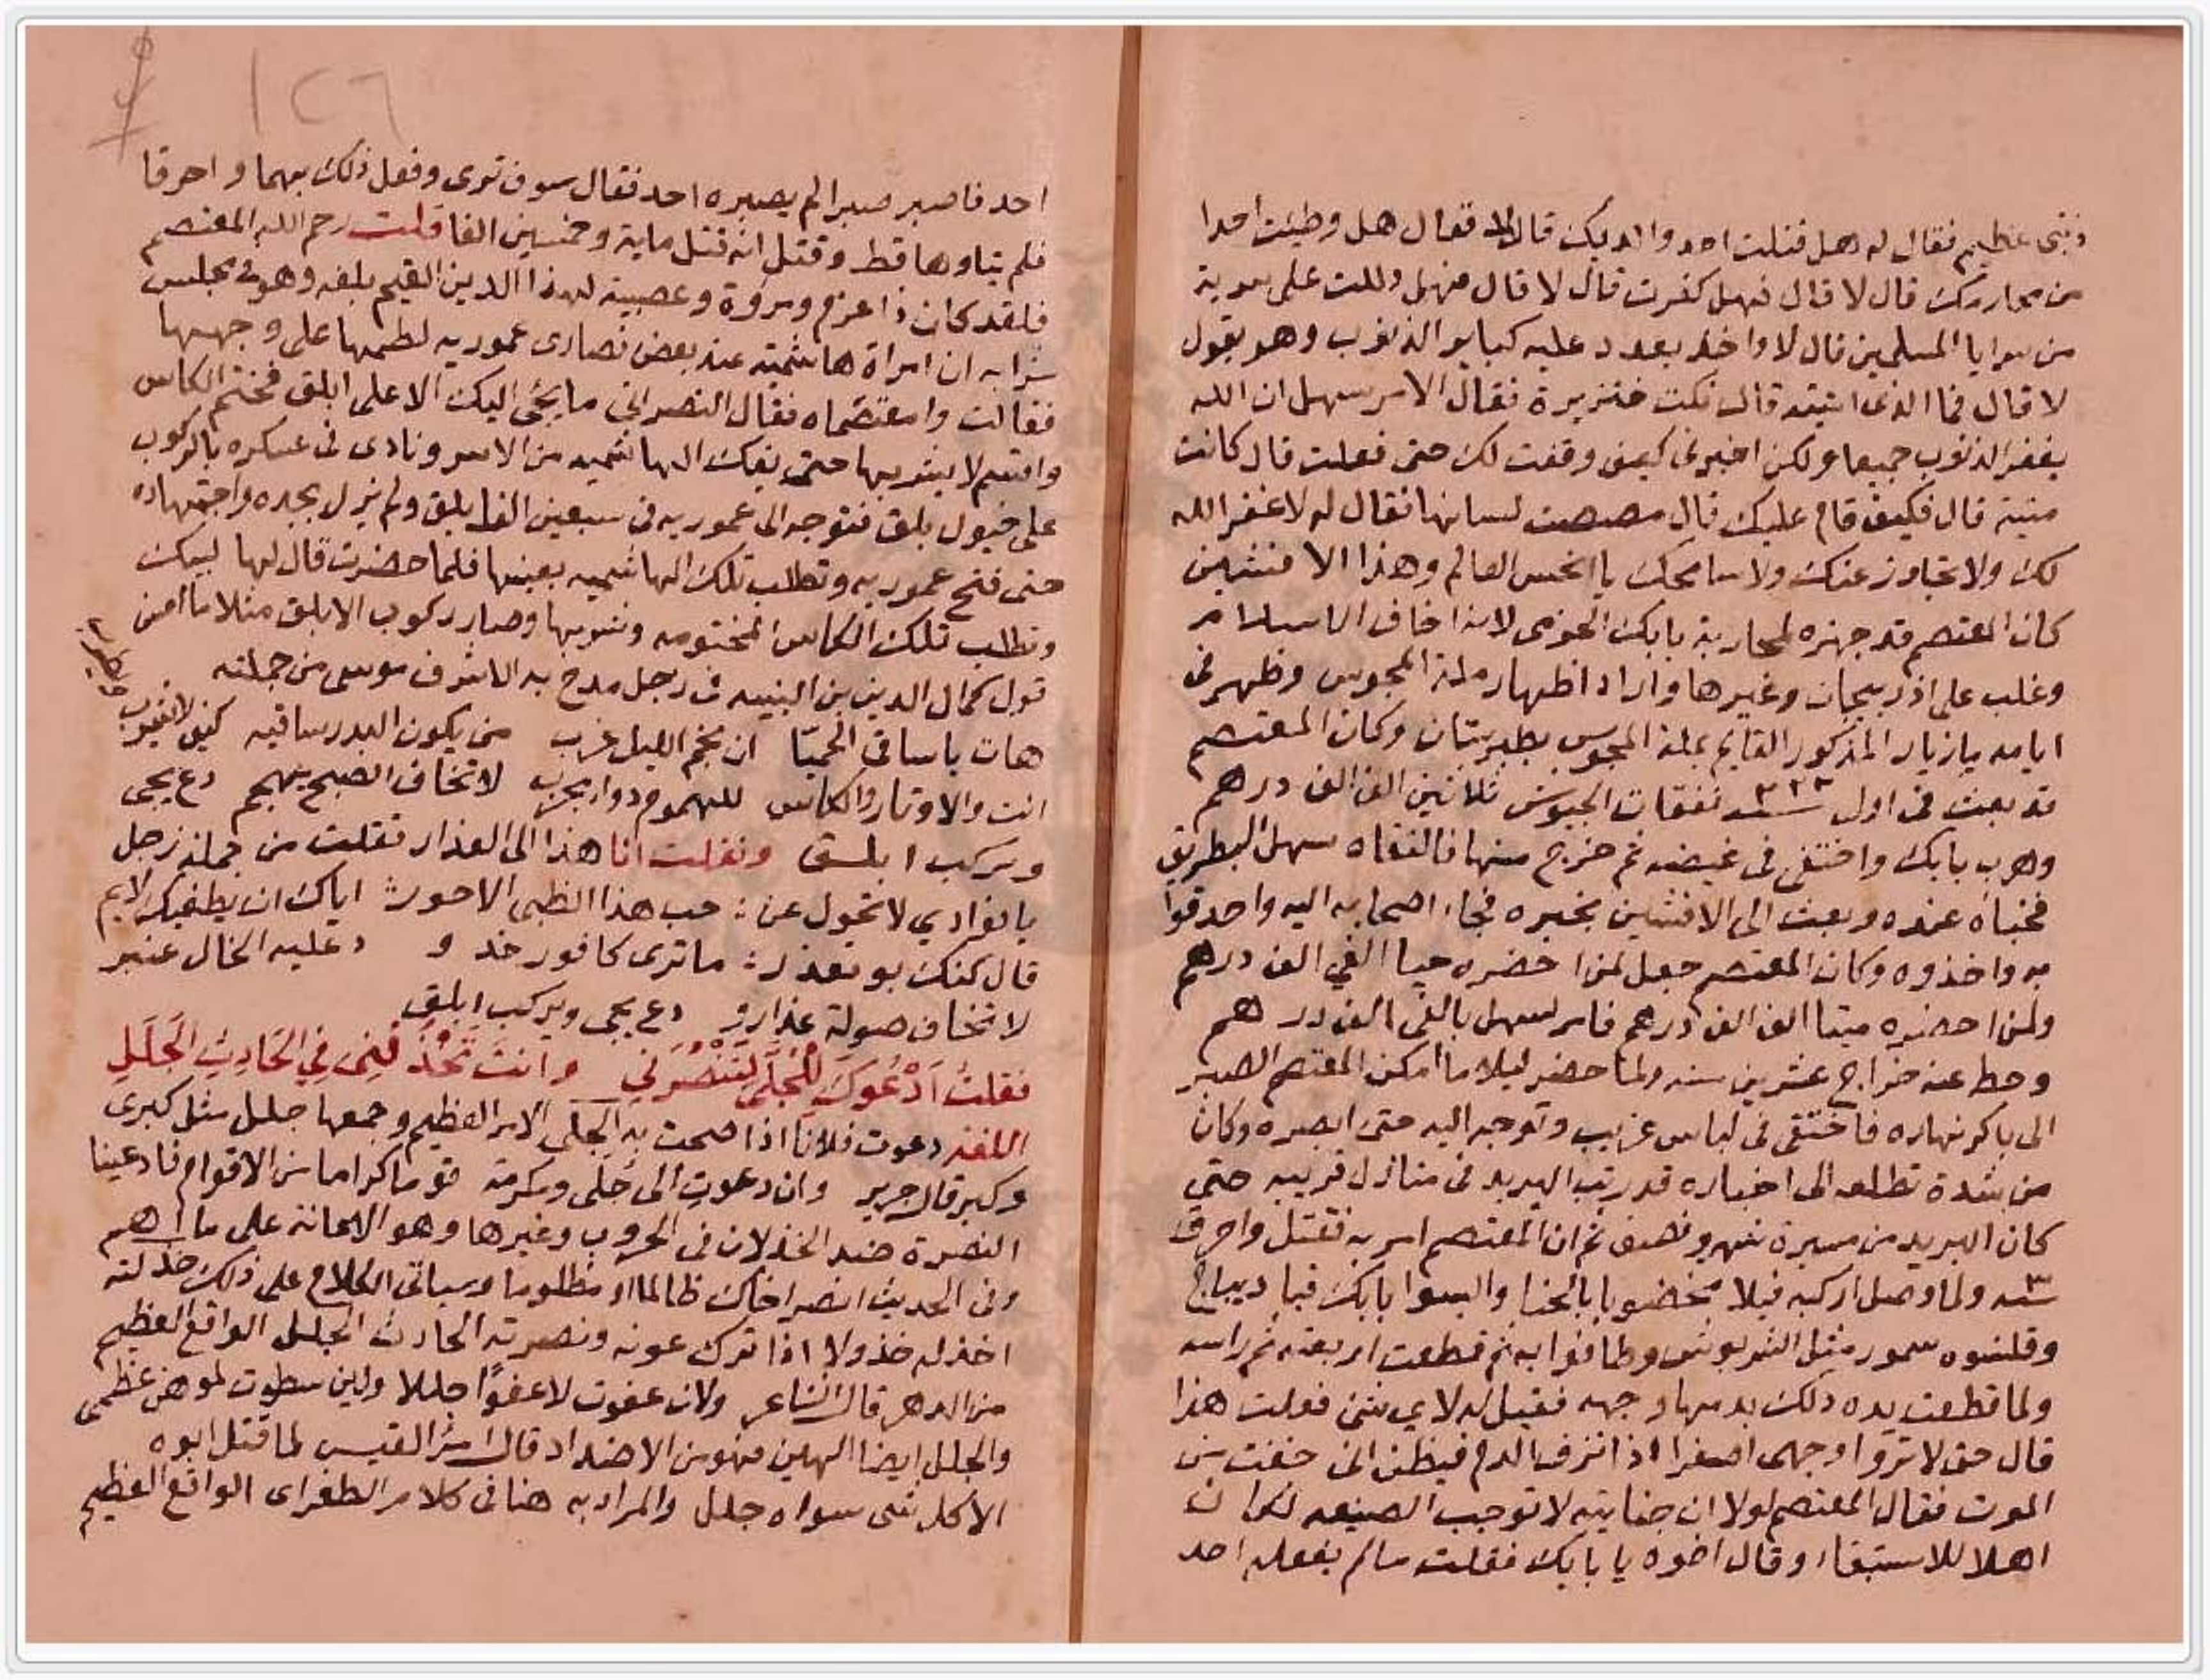 ذنبي عظيم فقال له هل قتلت احد والديك قال لا فقال هل وطيت احدا
من محارمك قال لا قال فهل كفرت قال لا قال فهل دللت على سرية
من سرايا المسلمين قال لا واخذ يعدد عليه كباير الذنوب وهو يقول
لا قال فما الذى اتيته قال نكت خنزيرة فقال الامر سهل ان الله
يغفر الذنوب جميعا ولكن اخبرنى كيف وقفت لك حتى فعلت قال كانت
ميتة قال فكيف قام عليك قال مصصت لسانها فقال له لا غفر الله
لك ولا تجاوز عنك ولا سامحك يا انحس العالم وهذا الافشين
كان المعتصم قد جهزه لمحاربة بابك الخرمى لانه اخاف الاسلام
وغلب على اذربيجان وغيرها واراد اظهار ملة المجوس وظهر فى
ايامه يازيار المذكور القايم بملة المجوس بطبرستان وكان المعتصم
قد بعث فى اول سنه ٢٢٣ نفقات الجيوش ثلاثين الف الف درهم
وهرب بابك واختفى فى غيضه ثم خرج منها فالتقاه سهل البطريق
فخباه عنده وبعث الى الافشين بخبره فجاء اصحابه اليه واحدقوا
به واخذوه وكان المعتصم جعل لمن احضره حيا الفي الف درهم
ولمن احضره ميتا الف الف درهم فامر لسهل بالفى الف درهم
وحط عنه خراج عشرين سنه ولما حضر ليلا ما امكن المعتصم الصبر
الى باكر نهاره فاختفى فى لباس غريب وتوجه اليه حتى ابصره وكان
من شدة تطلعه الى اخباره قد رتب البريد فى منازل قريبه حتي
كان البريد من مسيرة شهر ونصف ثم ان المعتصم امر به فقتل واحرق
سنه ٣ ولما وصل اركبه فيلا مخضوبا بالحنا والبسوا بابك قبا ديباج
وقلنسوه سمور مثل الشربوش وطافوا به ثم قطعت اربعته ثم راسه
ولما قطعت يده دلك بدمها وجهه فقيل له لاي شئ فعلت هذا
قال حتى لا تروا وجهى اصفرا اذا نزف الدم فيظن انى خفت من
الموت فقال المعتصم لولا ان جنايته لا توجب الصنيعه لكان
اهلا للاستبقاء وقال اخوه يا بابك فعلت ما لم يفعله احد
١٢٦
احد فاصبر صبرا لم يصبره احد فقال سوف ترى وفعل ذلك بهما واحرقا
فلم يتاوها قط وقتل انه قتل ماية وخمسين الفا قلت رحم الله المعتصم
فلقد كان ذا عزم ومروة وعصبية لهذا الدين القيم بلغه وهو فى مجلس
شرابه ان امراة هاشميه عند بعض نصارى عموريه لطمها على وجهها
فقالت وامعتصماه فقال النصرانى ما يجى اليك الا على ابلق فختم الكاس
واقسم لا يشربها حتى يفك الهاشميه من الاسر ونادى فى عسكره بالركوب
على خيول بلق فتوجه الى عموريه فى سبعين الف ابلق ولم يزل بجده واجتهاده
حتى فتح عموريه وتطلب تلك الهاشميه بعينها فلما حضرت قال لها لبيك
وتطلب تلك الكاس المختومه وشربها وصار ركوب الابلق مثلا ما احسن
قول كمال الدين بن النبيه فى زجل مدح به الاشرف موسى من جملته
هات يا ساقى الحميّا ان نجم الليل غرب من يكون البدر ساقيه كيف لا
انت والاوتار والكاس للهموم دوا مجرب لا تخاف الصبح يهجم دع يجى
ويركب ابلق ونقلت انا هذا الى العذار فقلت من جملة زجل
يا فوادي لا تحول عن : حب هذا الظبى الاحور اياك ان يطغيك لايم
قال كنك بو تعذر : ما ترى كافور خد و وعليه الخال عنبر
لا تخاف صولة عذارو دع يجى ويركب ابلق
فقلتُ اَدْعُوكَ لِلْجُلَّى لِتَنْصُرَني وانتَ تَخْذُلُنِى فِي الحَادِثِ الجَلَلِ
اللغه دعوت فلانا اذا صحت به الجلى الامر العظيم وجمعها جلل مثل كبرى
وكبر قال جرير وان دعوتِ الى جلّى ومكرمة قوما كراما من الاقوام فادعينا
النصرة ضد الخذلان فى الحروب وغيرها وهو الاعانة على ما اهم
وفى الحديث انصر اخاك ظالما او مظلوما وسياتى الكلام على ذلك خذلته
اخذله خذولا اذا ترك عونه ونصرته الحادث الجلل الواقع العظيم
من الدهر قال الشاعر ولان عفوت لاعفوًا جللا ولين سطوت لموهن عظمى
والجلل ايضا الهين فهو من الاضداد قال امرؤ القيس لما قتل ابوه
الا كل شى سواه جلل والمراد به هنا فى كلام الطغراى الواقع العظيم